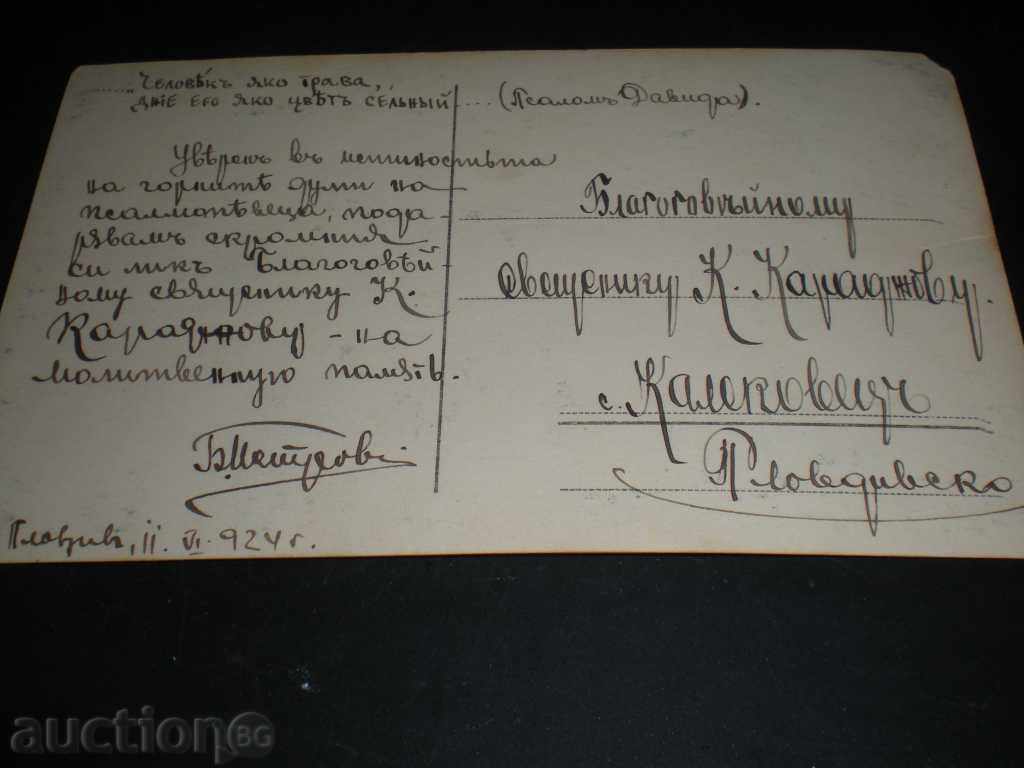 „Человѣкъ яко трава,
дніе его яко цвѣтъ сельный ... (Псаломъ Давида).
Увѣренъ въ истиностьта
на горнитѣ думи на
псалмопѣвеца, пода-
рявамъ скромния
си ликъ Благоговѣй-
ному священику К.
Караджову - на
молитвенную память.
Пловдивъ, 11. VI. 924 г.
Благоговѣйному
священику К. Караджову.
с. Калековецъ
Пловдивско
auction BG